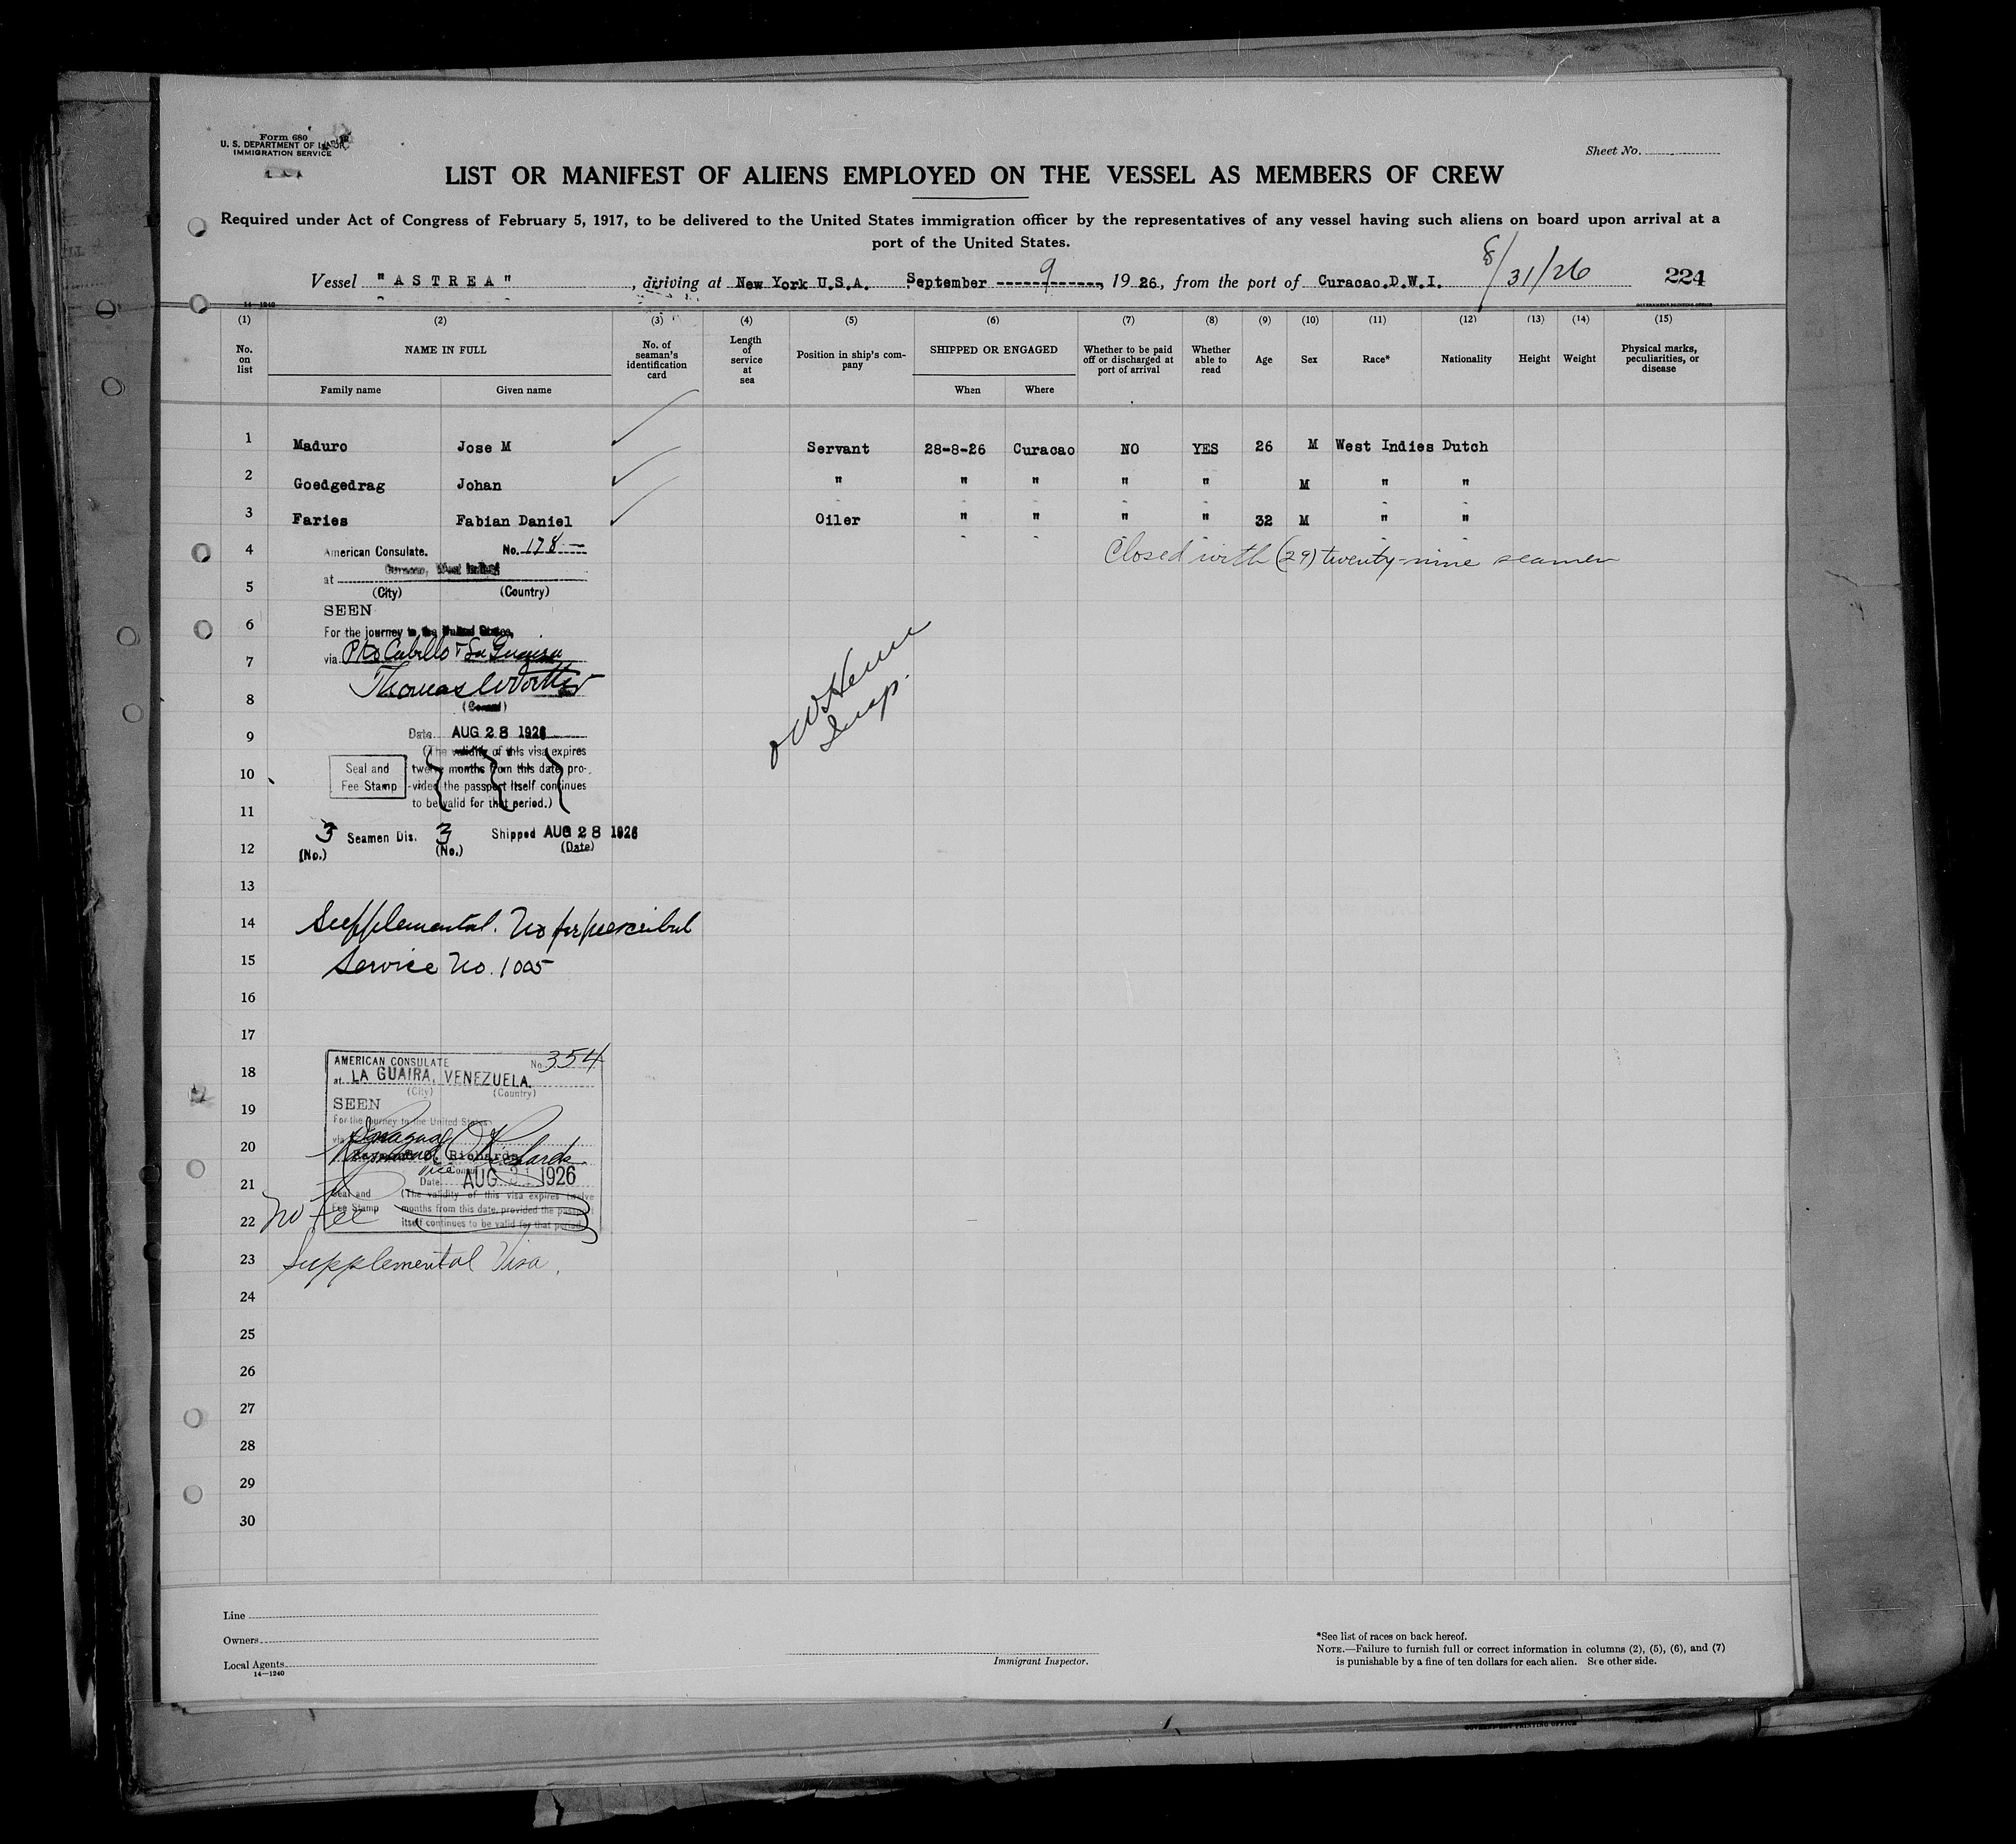 Form 680
U. S. DEPARTMENT OF LABOR
IMMIGRATION SERVICE
Sheet No.
LIST OR MANIFEST OF ALIENS EMPLOYED ON THE VESSEL AS MEMBERS OF CREW
Required under Act of Congress of February 5, 1917, to be delivered to the United States immigration officer by the representatives of any vessel having such aliens on board upon arrival at a
port of the United States.
Vessel "ASTREA", arriving at New York U.S.A. September 9, 1926, from the port of Curacao.D.W.I. 8/31/26 224
14-1240
GOVERNMENT PRINTING OFFICE
(1) (2) (3) (4) (5) (6) (7) (8) (9) (10) (11) (12) (13) (14) (15)
No. on list NAME IN FULL No. of seaman's identification card Length of service at sea Position in ship's company SHIPPED OR ENGAGED Whether to be paid off or discharged at port of arrival Whether able to read Age Sex Race* Nationality Height Weight Physical marks, peculiarities, or disease
Family name Given name When Where
1 Maduro Jose M Servant 28-8-26 Curacao NO YES 26 M West Indies Dutch
2 Goedgedrag Johan " " " " " M " "
3 Faries Fabian Daniel Oiler " " " " 32 M " "
4 American Consulate. No. 178 Closed with (29) twenty-nine seamen
at Curacao, West Indies
5 (City) (Country)
SEEN
6 For the journey to the United States,
7 via Pto Cabello & La Guaira
8
(Consul)
9 Date AUG 28 1926
(The validity of this visa expires
10 Seal and twelve months from this date, pro-
Fee Stamp vided the passport itself continues
11 to be valid for that period.)
3 Seamen Dis. 3 Shipped AUG 28 1926
12 (No.) (No.) (Date)
Insp.
13
14 Supplemental. No fee prescribed
15 Service No. 1005
16
17
AMERICAN CONSULATE No 354
18 at LA GUAIRA, VENEZUELA.
(City) (Country)
19 SEEN
For the journey to the United States
20 via
Richards
Vice Consul
21 Date AUG 31 1926
Seal and (The validity of this visa expires twelve
Fee Stamp months from this date, provided the passport
22 No fee itself continues to be valid for that period.)
23 Supplemental Visa.
24
25
26
27
28
29
30
Line
Owners
Local Agents
14-1240
Immigrant Inspector.
*See list of races on back hereof.
NOTE.—Failure to furnish full or correct information in columns (2), (5), (6), and (7)
is punishable by a fine of ten dollars for each alien. See other side.
GOVERNMENT PRINTING OFFICE